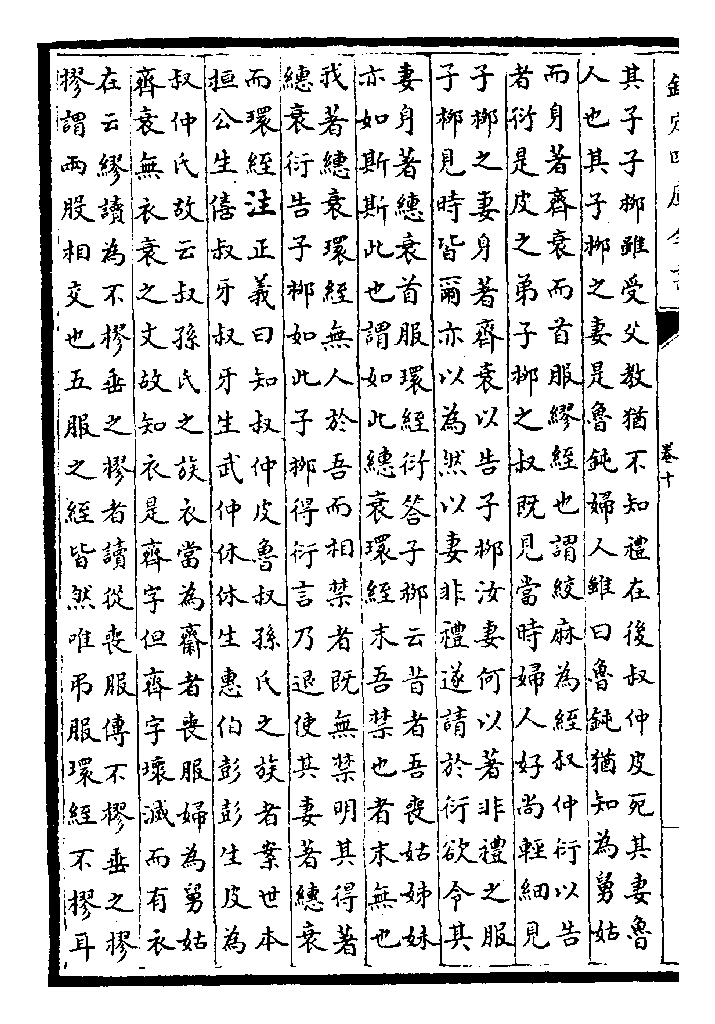 欽定四庫全書
卷十
其子子柳雖受父教猶不知禮在後叔仲皮死其妻魯
人也其子柳之妻是魯鈍婦人雖曰魯鈍猶知為舅姑
而身著齊衰而首服繆絰也謂絞麻為絰叔仲衍以告
者衍是皮之弟子柳之叔既見當時婦人好尚輕細見
子柳之妻身著齊衰以告子柳汝妻何以著非禮之服
子柳見時皆爾亦以為然以妻非禮遂請於衍欲令其
妻身著繐衰首服環絰衍答子柳云昔者吾喪姑姊妹
亦如斯斯此也謂如此繐衰環絰末吾禁也者末無也
我著繐衰環絰無人於吾而相禁者既無禁明其得著
繐衰衍告子柳如此子柳得衍言乃退使其妻著繐衰
而環絰注正義曰知叔仲皮魯叔孫氏之族者案世本
桓公生僖叔牙叔牙生武仲休休生惠伯彭彭生皮為
叔仲氏故云叔孫氏之族衣當為齋者喪服婦為舅姑
齊衰無衣衰之文故知衣是齊字但齊字壞滅而有衣
在云繆讀為不樛垂之樛者讀從喪服傳不樛垂之樛
樛謂兩股相交也五服之絰皆然唯弔服環絰不樛耳